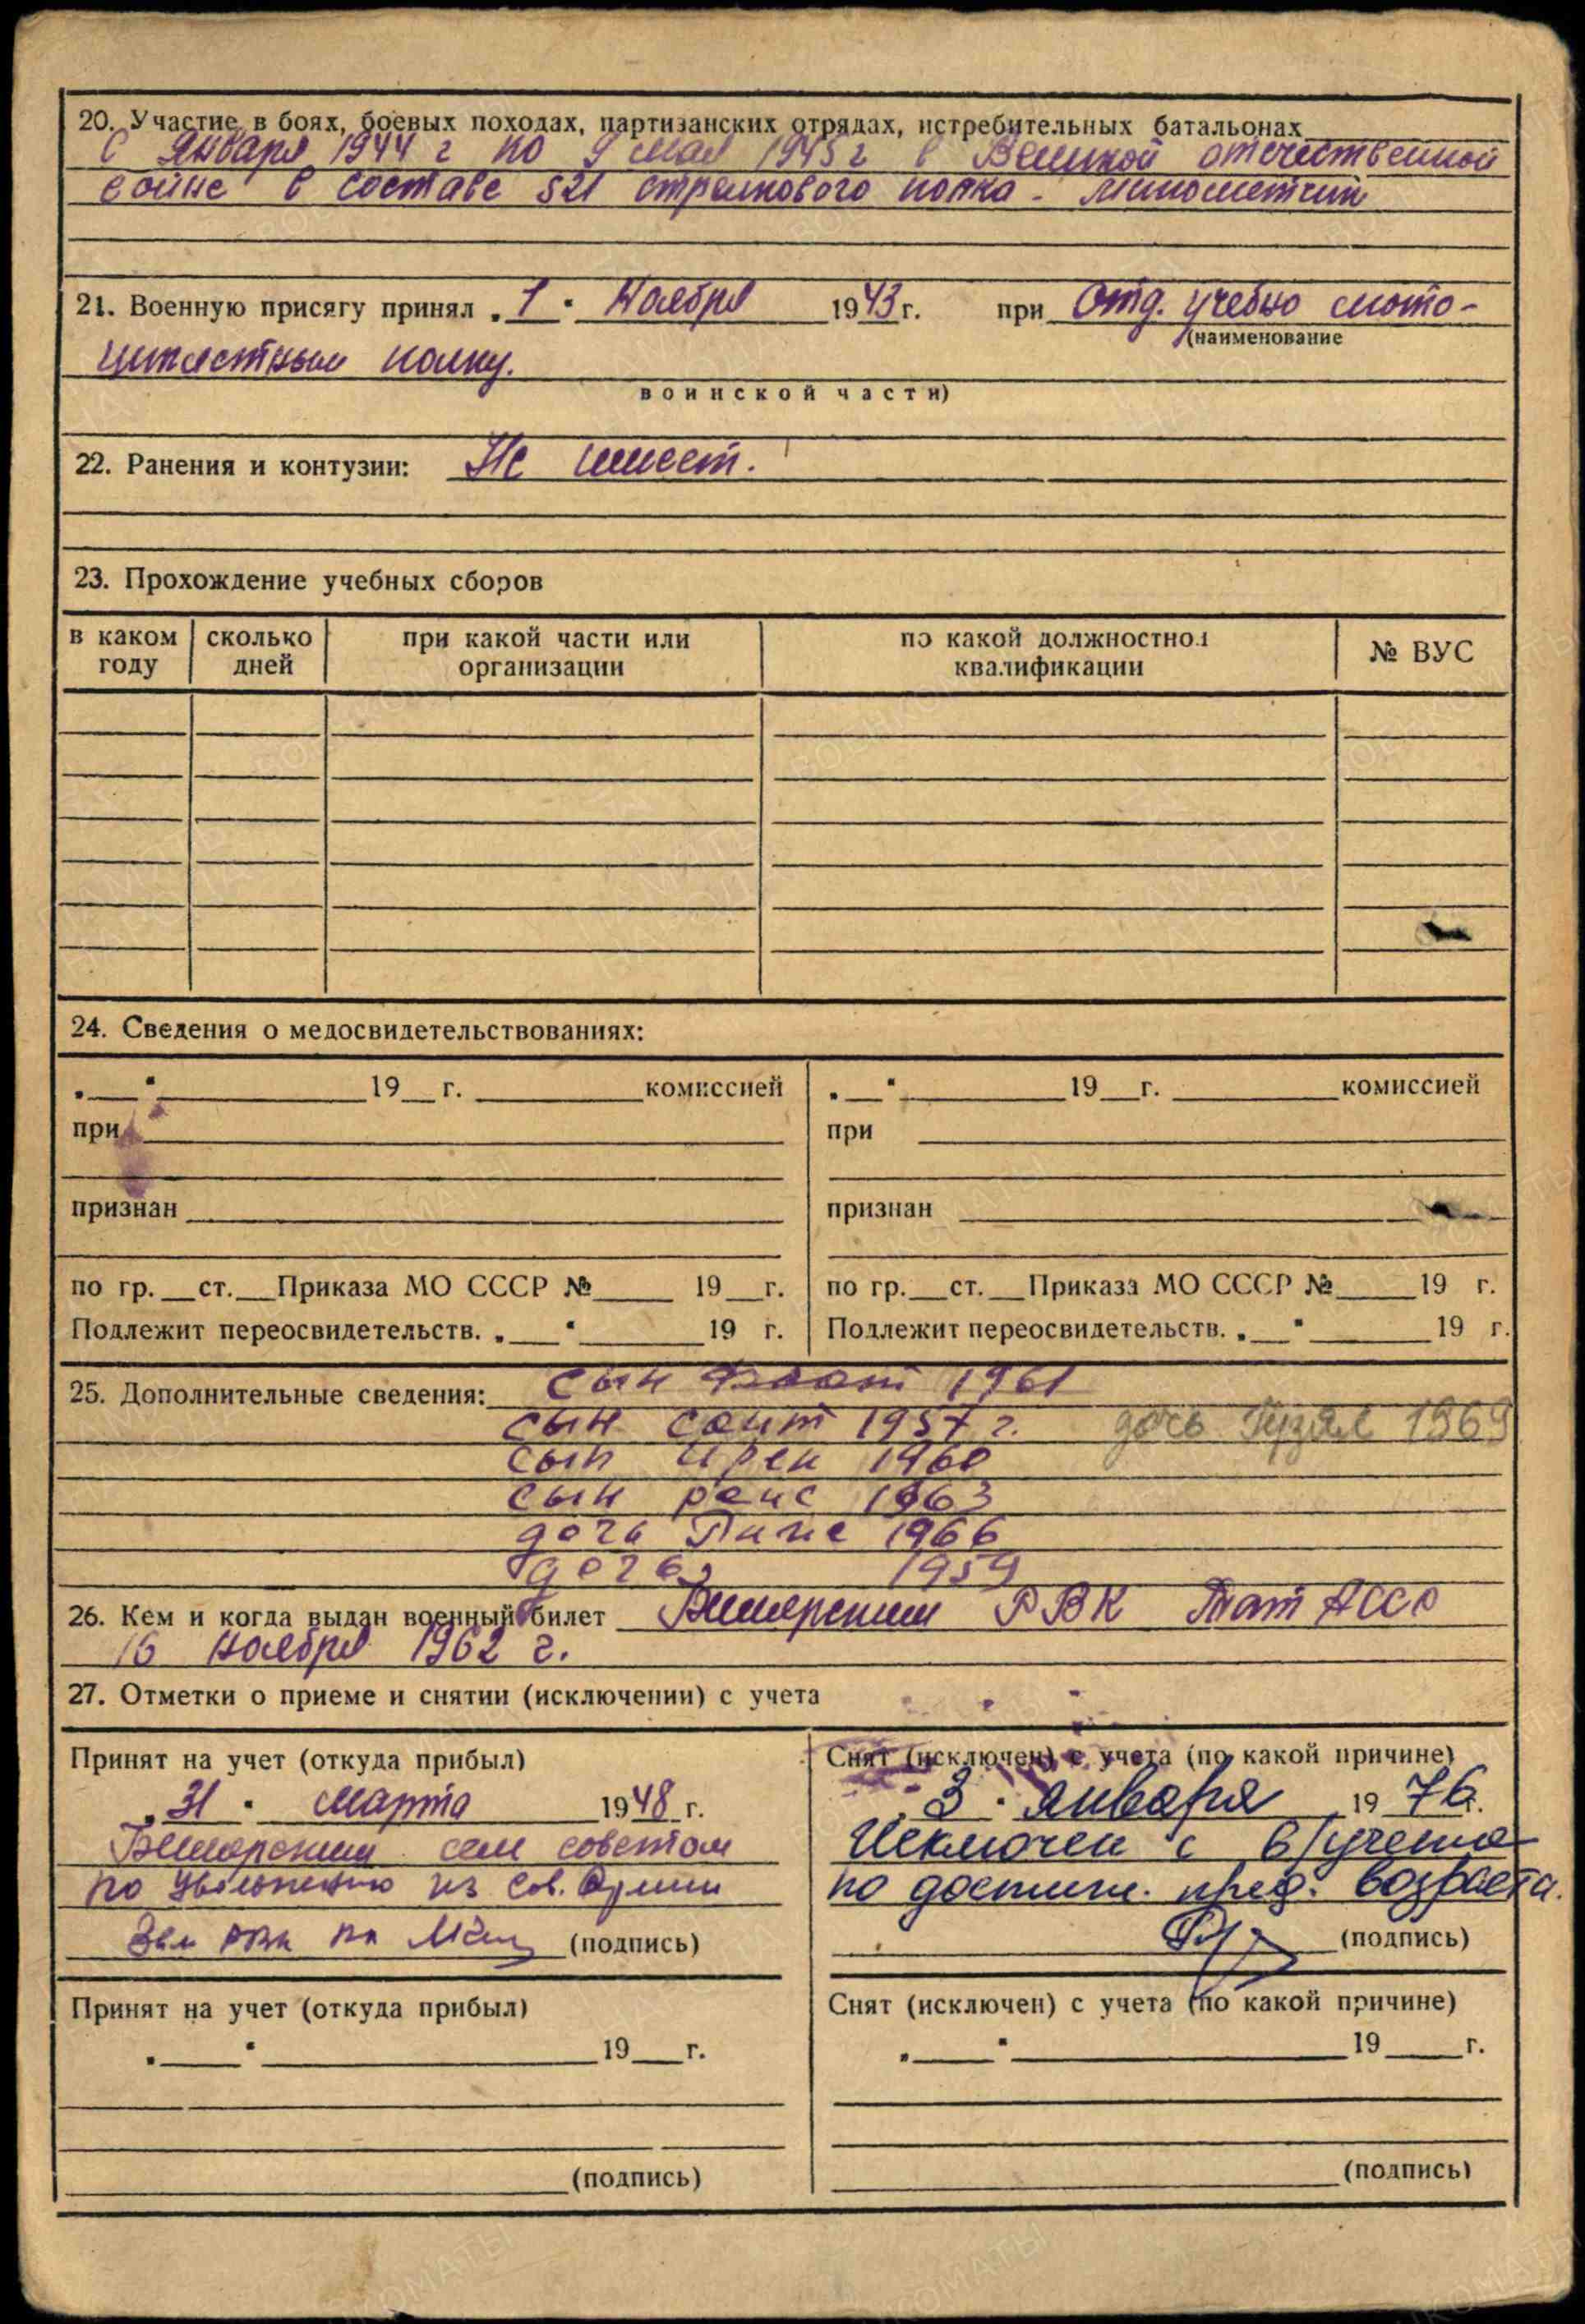 20. Участие в боях, боевых походах, партизанских отрядах, истребительных батальонах
С Января 1944 г по 9 мая 1945 г в Великой отечественной
войне в составе 521 стрелкового полка - минометчик
21. Военную присягу принял „1“ Ноября 1943 г. при Отд. учебно мото-
(наименование
циклетным полку.
воинской части)
22. Ранения и контузии: Не имеет.
23. Прохождение учебных сборов
в каком году сколько дней при какой части или организации по какой должностной квалификации № ВУС
24. Сведения о медосвидетельствованиях:
„__“ 19__г. комиссией „__“ 19__г. комиссией
при при
признан признан
по гр.__ст.__Приказа МО СССР №__ 19__г. по гр.__ст.__Приказа МО СССР №__ 19 г.
Подлежит переосвидетельств. „__“ 19 г. Подлежит переосвидетельств. „__“ 19 г.
25. Дополнительные сведения: сын 1961
сын саит 1957 г. дочь Гузял 1969
сын Ирек 1960
сын раис 1963
дочь 1966
дочь 1959
26. Кем и когда выдан военный билет РВК Тат АССР
16 ноября 1962 г.
27. Отметки о приеме и снятии (исключении) с учета
Принят на учет (откуда прибыл)
„31“ марта 1948 г.
сель советом
по увольнению из Сов. Армии
(подпись)
Снят (исключен) с учета (по какой причине)
„3“ января 1976 г.
Исключен с в/учета
по достиж. пред. возраста.
(подпись)
Принят на учет (откуда прибыл)
„__“ 19__г.
(подпись)
Снят (исключен) с учета (по какой причине)
„__“ 19__г.
(подпись)